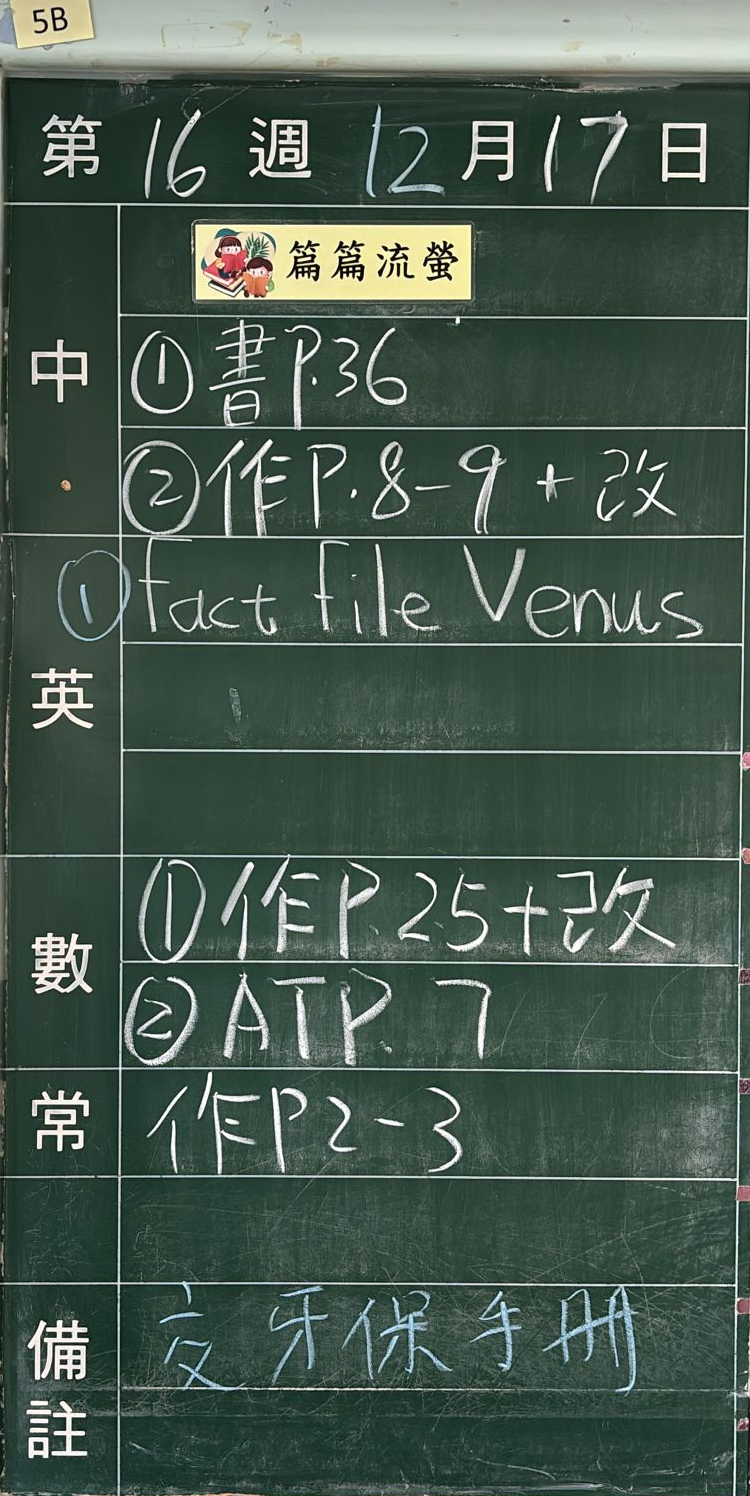 5B
第 16 週 12 月 17 日
篇篇流螢
中
① 書P.36
② 作P.8-9 + 改
英
① fact file Venus
數
① 作P.25+改
② ATP.7
常
作P2-3
備註
交牙保手册